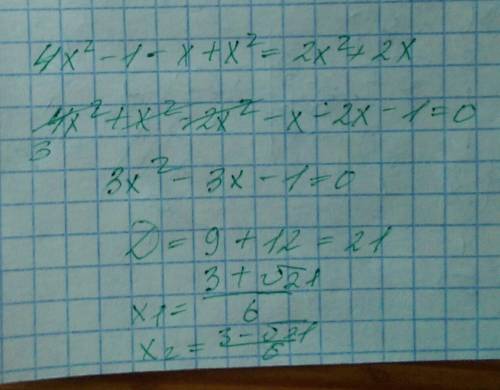 4x² - 1 - x + x² = 2x² + 2x
4x² + x² - 2x² - x - 2x - 1 = 0
3
3x² - 3x - 1 = 0
D = 9 + 12 = 21
x₁ = (3 + √21)/6
x₂ = (3 - √21)/6